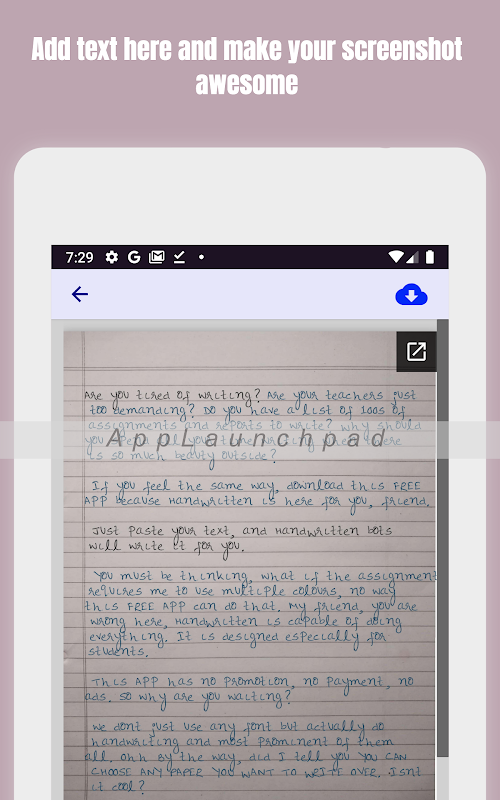 Add text here and make your screenshot
awesome
7:29
Are you tired of writing? Are your teachers just
too demanding? Do you have a list of 100s of
assignments and reports to write? Why should
you
AppLaunchpad
is so much beauty outside?
If you feel the same way, download this FREE
APP because Handwritten is here for you, friend.
Just paste your text, and Handwritten bots
will write it for you.
You must be thinking, what if the assignment
requires me to use multiple colours, no way
this FREE APP can do that. My friend, you are
wrong here, Handwritten is capable of doing
everything. It is designed especially for
students.
This APP has no promotion, no payment, no
ads. So why are you waiting?
We dont just use any font but actually do
handwriting and most prominent of them
all. Ohh by the way, did I tell you YOU CAN
CHOOSE ANY PAPER YOU WANT TO WRITE OVER. Isnt
it cool?